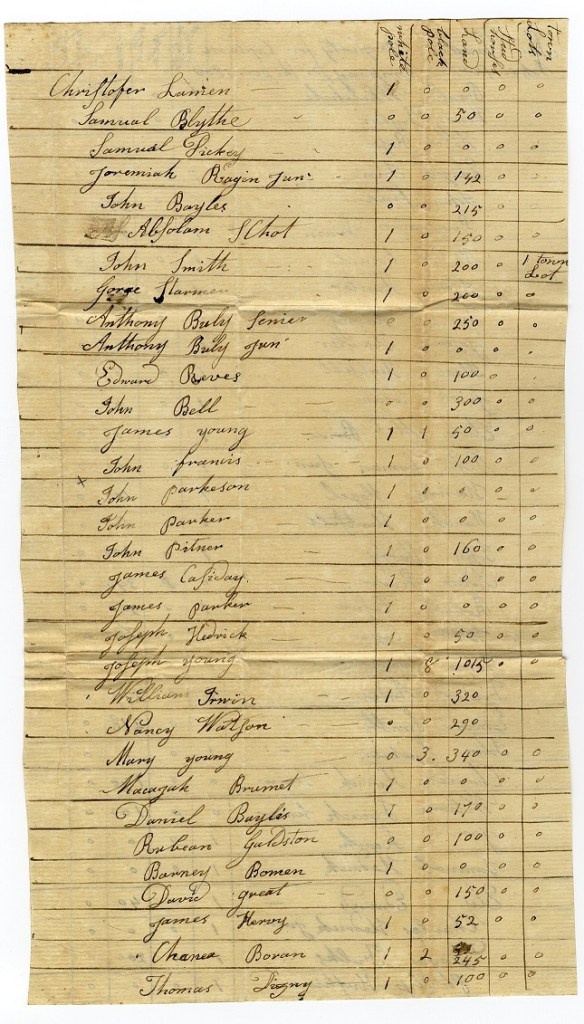 white pole black pole Land Stud horses town Lots
Christofer Lamen 1 0 0 0 0
Samual Blythe 0 0 50 0 0
Samual Dickey 1 0 0 0 0
Joremiah Ragin Junr 1 0 142 0
John Bayles 0 0 215
Absolam SChot 1 0 150 0 0
John Smith 1 0 200 0 1 town Lot
Gorge Starmer 1 0 200 0 0
Anthony Buly Senier 0 0 250 0 0
Anthony Buly Junr 1 0 0 0
Edward Reeves 1 0 100 0
John Bell 0 0 300 0 0
James young 1 1 50 0 0
John francis 1 0 100 0 0
x John parkeson 1 0 0 0 0
John Parker 1 0 0 0 0
John Pitner 1 0 160 0 0
James Casiday 1 0 0 0 0
James parker 1 0 0 0 0
Joseph Hedrick 1 0 50 0 0
Joseph young 1 8 1015 0 0
William Irwin 1 0 320
Nancy Watson 0 0 290
Mary young 0 3. 340 0 0
Macagah Brumet 1 0 0 0 0
Daniel Baylis 1 0 170 0 0
Rubean Guldston 0 0 100 0 0
Barney Bomen 1 0 0 0 0
David great 0 0 150 0 0
James Hervy 1 0 52 0 0
Chanea Boran 1 2 245 0 0
Thomas 1 0 100 0 0